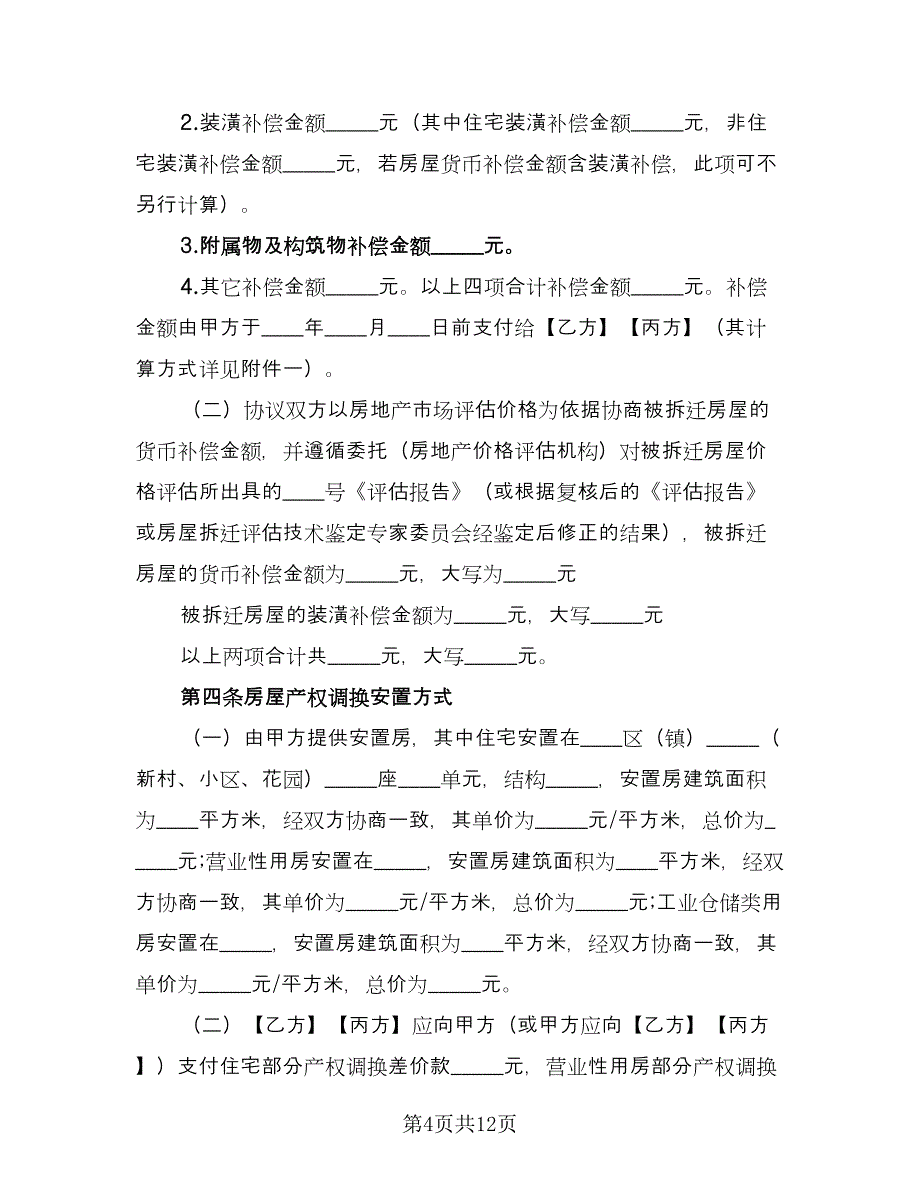 2.装潢补偿金额_____元（其中住宅装潢补偿金额_____元，非住
宅装潢补偿金额_____元，若房屋货币补偿金额含装潢补偿，此项可不
另行计算）。
3.附属物及构筑物补偿金额_____元。
4.其它补偿金额_____元。以上四项合计补偿金额_____元。补偿
金额由甲方于____年____月____日前支付给【乙方】【丙方】（其计
算方式详见附件一）。
（二）协议双方以房地产市场评估价格为依据协商被拆迁房屋的
货币补偿金额，并遵循委托（房地产价格评估机构）对被拆迁房屋价
格评估所出具的____号《评估报告》（或根据复核后的《评估报告》
或房屋拆迁评估技术鉴定专家委员会经鉴定后修正的结果），被拆迁
房屋的货币补偿金额为_____元，大写为_____元
被拆迁房屋的装潢补偿金额为_____元，大写_____元
以上两项合计共_____元，大写_____元。
第四条房屋产权调换安置方式
（一）由甲方提供安置房，其中住宅安置在____区（镇）_____（
新村、小区、花园）_____座____单元，结构_____，安置房建筑面积
为____平方米，经双方协商一致，其单价为_____元/平方米，总价为_
____元;营业性用房安置在_____，安置房建筑面积为____平方米，经双
方协商一致，其单价为_____元/平方米，总价为_____元;工业仓储类用
房安置在_____，安置房建筑面积为____平方米，经双方协商一致，其
单价为_____元/平方米，总价为_____元。
（二）【乙方】【丙方】应向甲方（或甲方应向【乙方】【丙方
】）支付住宅部分产权调换差价款_____元，营业性用房部分产权调换
第4页共12页